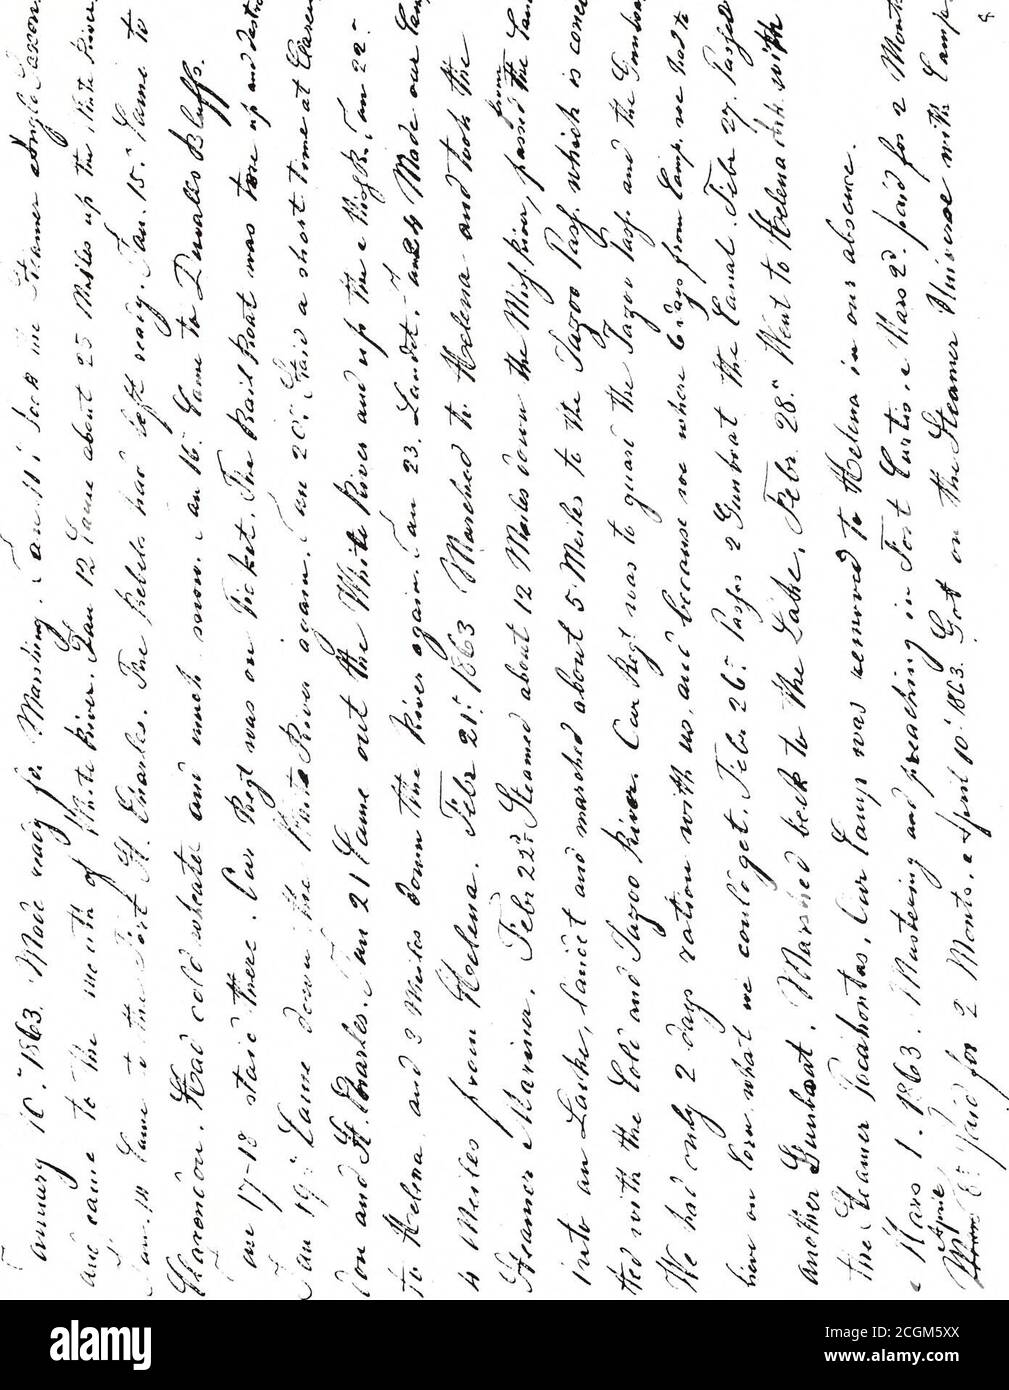 January 10. 1863. Made ready for Marching. Jan. 11 in Steamer Anglo Saxon
and came to the mouth of White River. Jan 12 Came about 25 Miles up the White River
Came to the Fort St. Charles. The Rebels had left ready. Jan. 15. Came to
Clarendon. Had cold wheater and much snow. Jan 16. Came to Duvalls Bluffs.
Jan 17-18 staid there. Our Regt was on Picket. The Rail Road was tore up and
Jan 19 Came down the White River again. Jan 20. Staid a short time at Claren
don and St. Charles. Jan 21 Came out the White River and up the Miss. R. Jan 22
to Helena and 3 Miles down the River again. Jan 23. Landet. Jan 24 Made our Camp
4 Meiles from Helena. Febr 21. 1863 Marched to Helena and took the
Steamer Marina. Febr 22d Steamed about 12 Meiles down the Miss. River, from passed the
into an Lake, landet and marched about 5 Meiles to the Yazoo Pass. which is
ted with the Cold and Yazoo River. Our Regt was to guard the Yazoo Pass and the Gunboat
We had only 2 days ration with us, and because we where 6 days from Camp, we had to
live on Corn. what we could get. Febr 26. Passed 2 Gunboat the Canal. Febr 27. Passed
another Gunboat. Marshed back to the Lake. Febr 28. Went to Helena with
the Steamer Pocahontas. Our Camp was removed to Helena in our absence.
Mars 1. 1863. Mustering and preaching in Fort Curtis. Mars 2d paid for 2 Month
April
8 Paid for 2 Monts. April 10. 1863. Got on the Steamer Universe with Camp
8
alamy
Image ID: 2CGM5XX
www.alamy.com